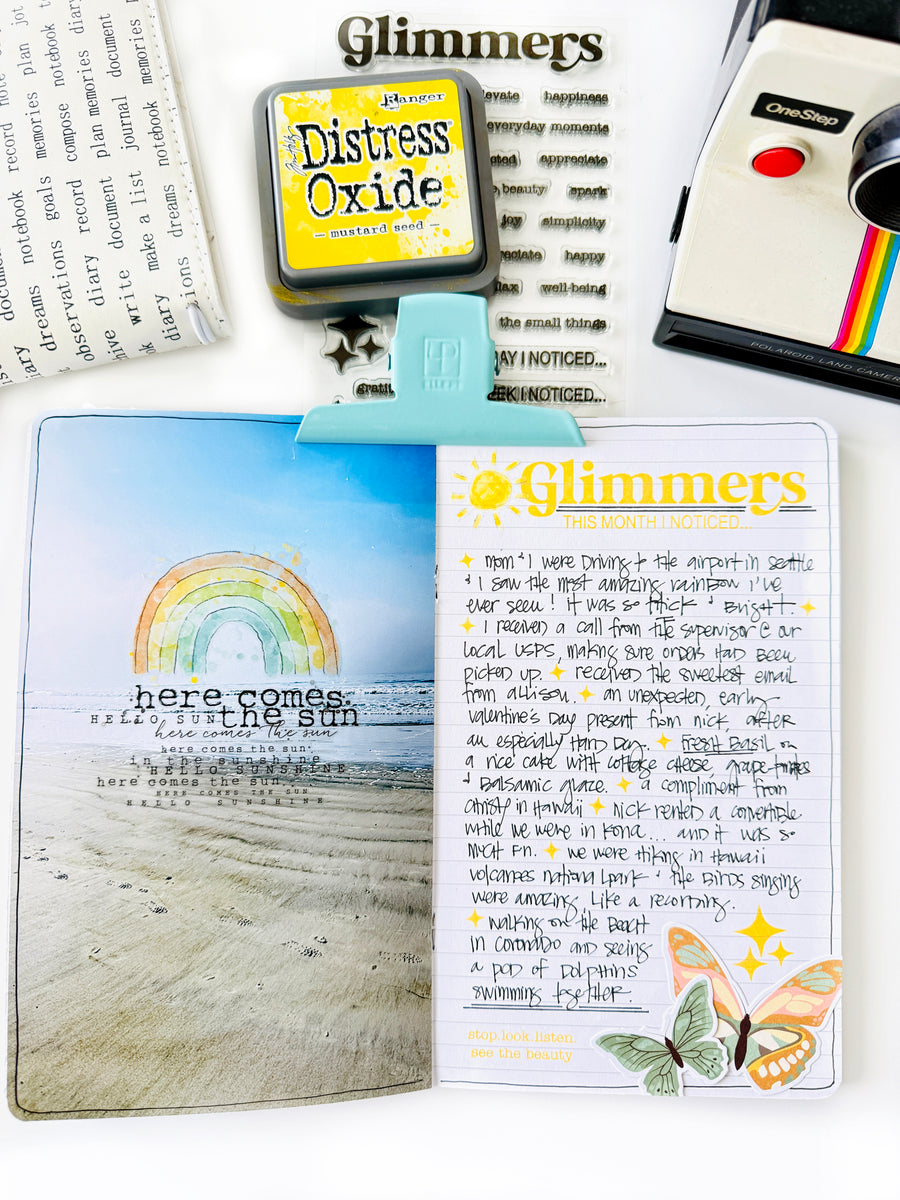 record note
notebook record
memories plan jot
goals memories
observations goals
compose notebook
record compose
diary record plan memories
document diary
write document journal document
make a list
dreams notebook memories
diary dreams
Glimmers
Ranger
Distress
Oxide
— mustard seed —
happiness
everyday moments
appreciate
beauty spark
joy simplicity
happy
well-being
the small things
AY I NOTICED...
EEK I NOTICED...
OneStep
POLAROID LAND CAMERA
here comes
the sun
HELLO SUN
here comes the sun
here comes the sun
in the sunshine
HELLO SUNSHINE
here comes the sun
HERE COMES THE SUN
HELLO SUNSHINE
Glimmers
THIS MONTH I NOTICED...
mom & I were driving to the airport in seattle
& I saw the most amazing rainbow I've
ever seen! it was so thick & bright.
I received a call from the supervisor @ our
local USPS, making sure orders had been
picked up. received the sweetest email
from allison. an unexpected, early
valentine's day present from nick, after
an especially hard day. fresh basil on
a rice cake with cottage cheese, grape
& balsamic glaze. a compliment from
christy in Hawaii nick rented a convertible
while we were in kona... and it was so
much fun. we were hiking in Hawaii
volcanoes national park & the birds singing
were amazing. Like a recording.
walking on the beach
in coronado and seeing
a pod of dolphins
swimming together.
stop.look.listen.
see the beauty